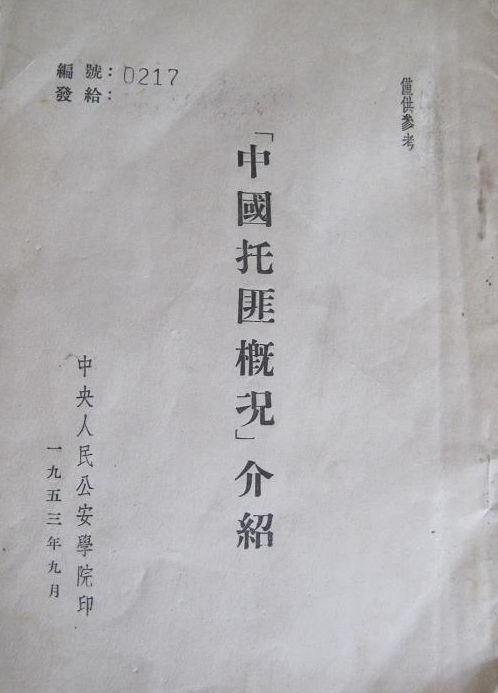 編號：0217
發給：
僅供參考
「中國托匪概況」介紹
中央人民公安學院印
一九五三年九月